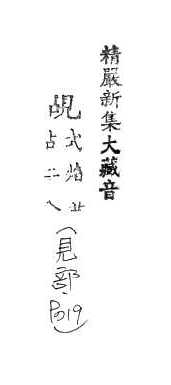 精嚴新集大藏音
覘
式焰
占二
(見部.P019)